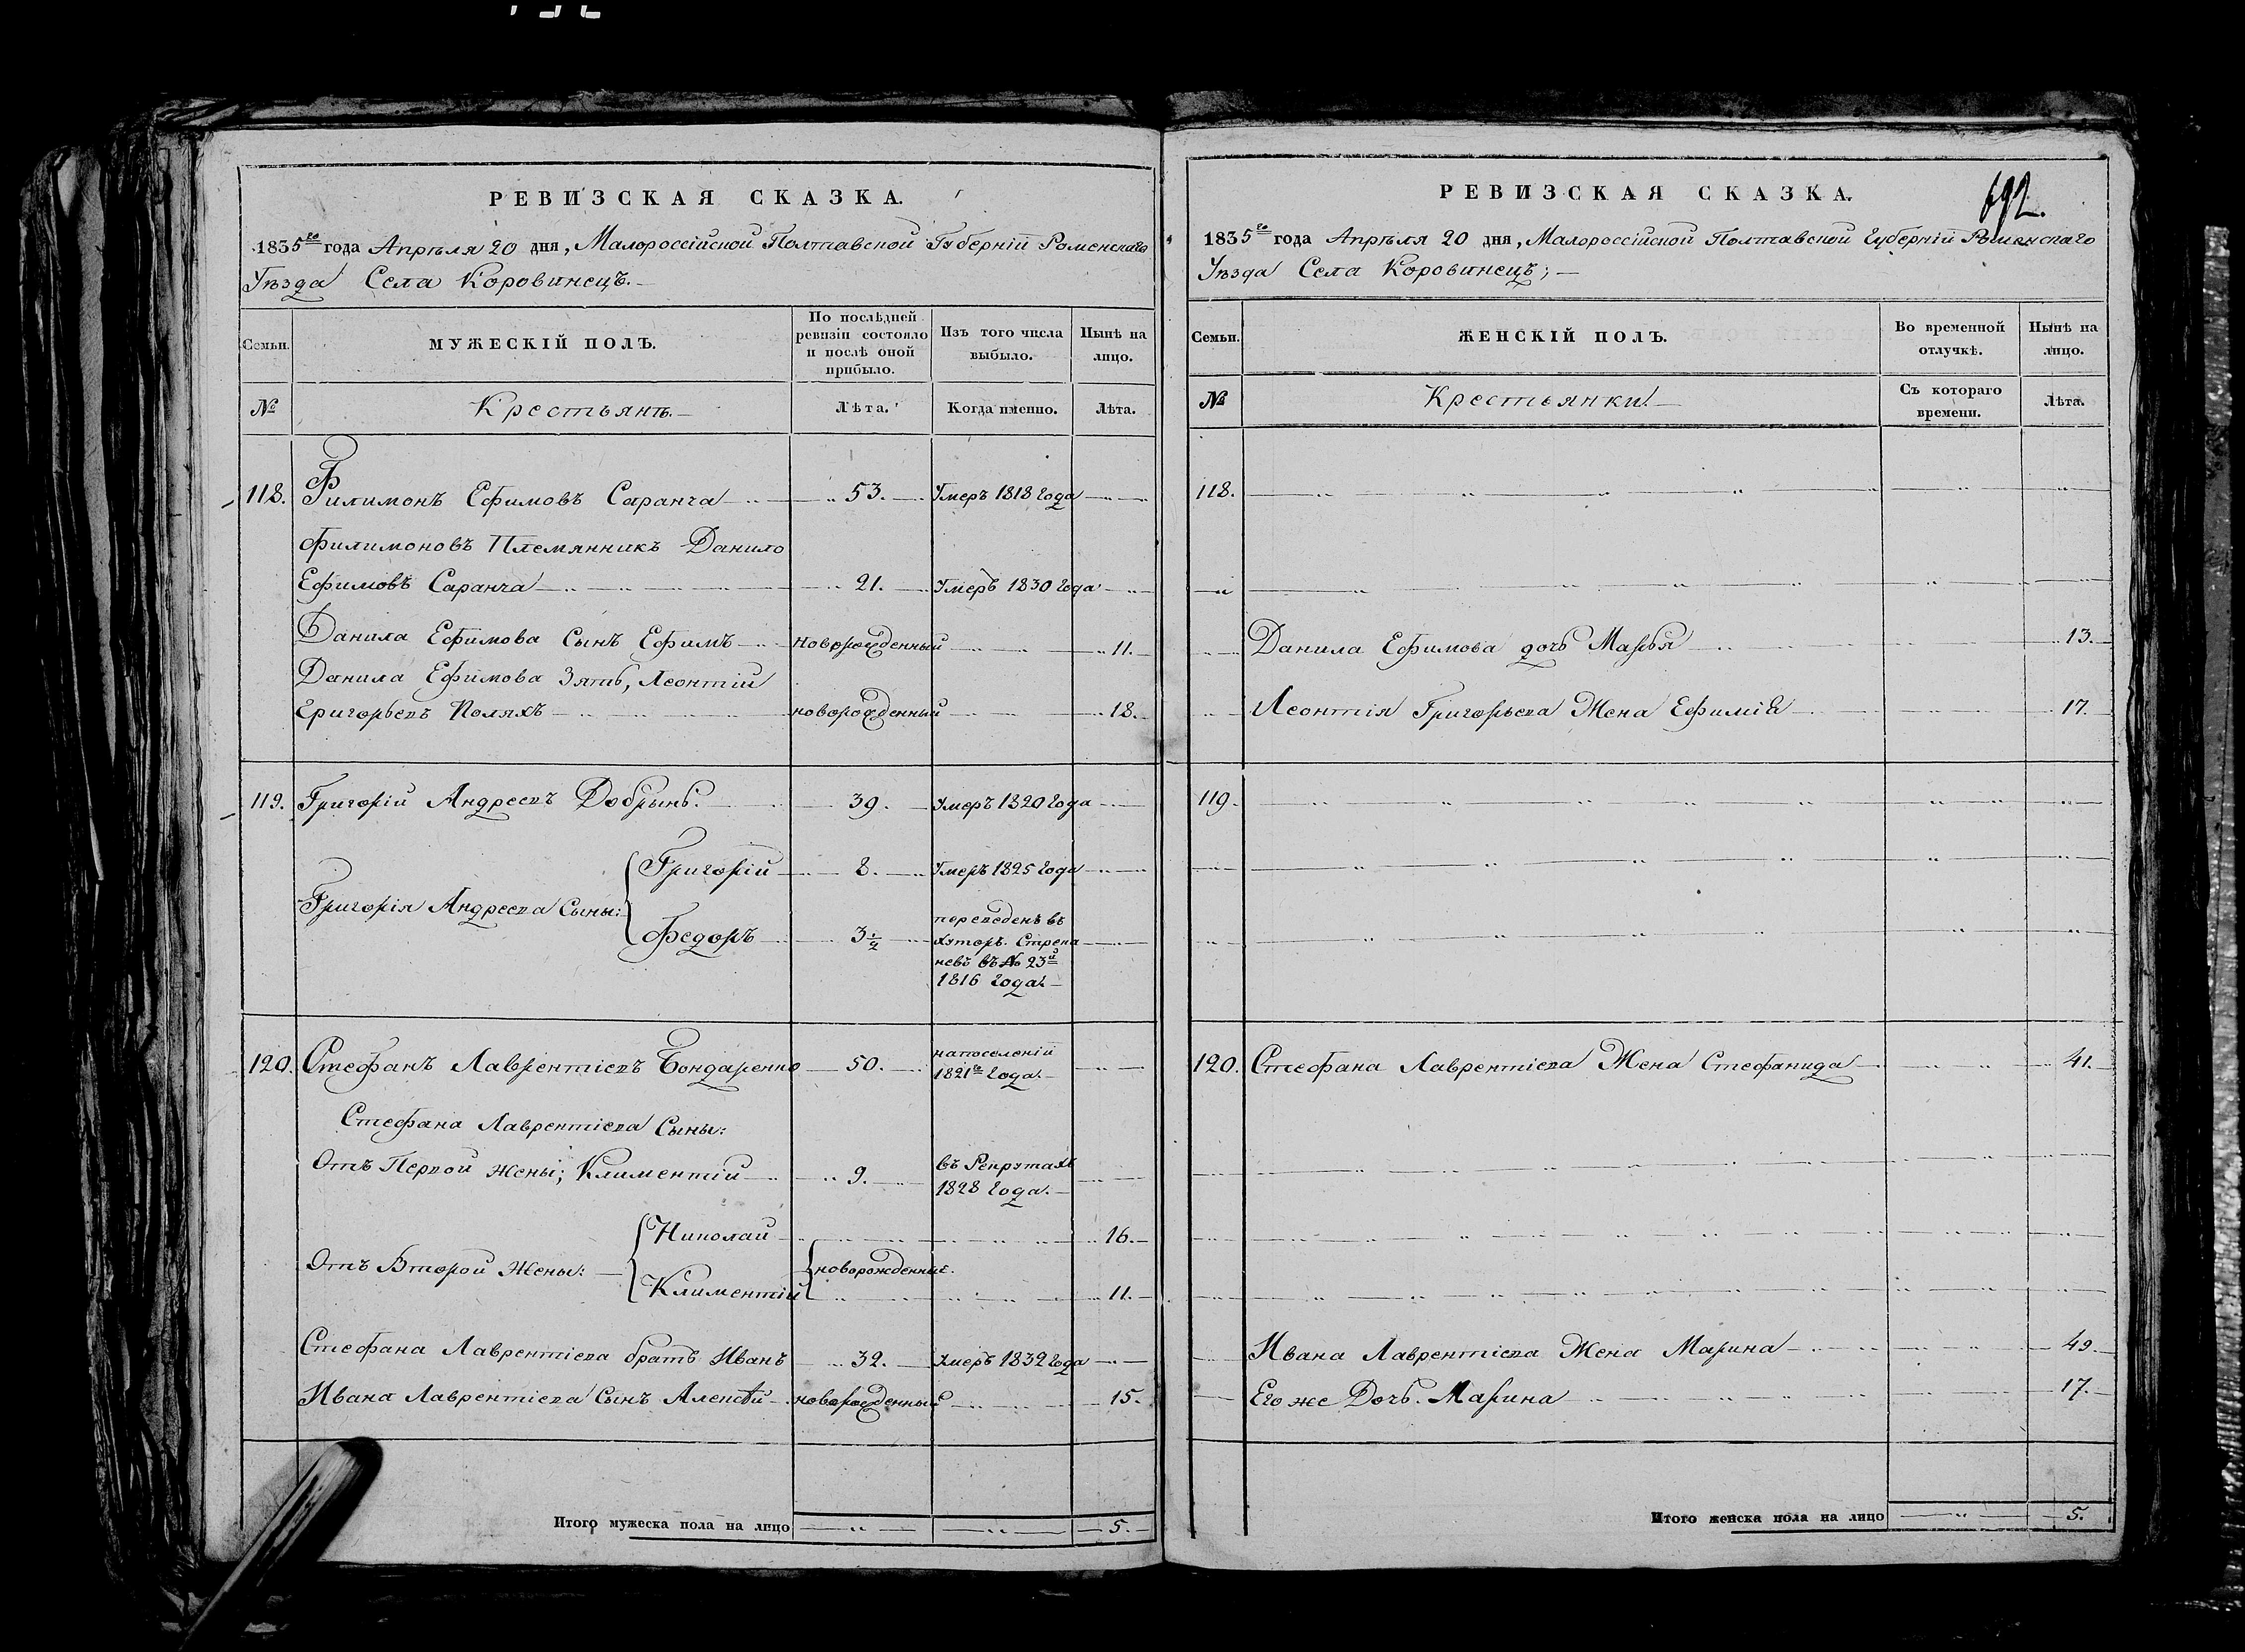 РЕВИЗСКАЯ СКАЗКА.
1835го года Апрѣля 20 дня, Малороссійской Полтавской Губерніи Роменскаго
Уѣзда Села Коровинецъ.
Семьи.
МУЖЕСКІЙ ПОЛЪ.
По послѣдней ревизіи состояло и послѣ оной прибыло.
Изъ того числа выбыло.
Нынѣ на лицо.
№
Крестьянъ.
Лѣта.
Когда именно.
Лѣта.
118. Филимонъ Ефимовъ Саранча 53. Умеръ 1818 года
Филимоновъ Племянникъ Данило
Ефимовъ Саранча 21. Умеръ 1830 года
Данила Ефимова Сынъ Ефимъ новорожденный 11.
Данила Ефимова Зять, Леонтій
Григорьевъ Поляхъ новорожденный 18.
119. Григорій Андреевъ Добрынь. 39. Умеръ 1820 года
Григорій 8. Умеръ 1825 года
Григорія Андреева Сыны:
Федоръ 3 1/2
переведенъ въ
хуторъ
невъ въ № 23й
1816 года.
120. Стефанъ Лаврентіевъ Бондаренко 50.
на поселеніи
1821го года.
Стефана Лаврентіева Сыны:
Отъ Первой жены; Климентій 9.
въ Рекрутахъ
1828 года.
Николай 16.
Отъ Второй Жены: новорожденные.
Климентій 11.
Стефана Лаврентіева братъ Иванъ 32. Умеръ 1832 года
Ивана Лаврентіева Сынъ Алексѣй новорожденный 15.
Итого мужеска пола на лицо 5.
РЕВИЗСКАЯ СКАЗКА.
692.
1835го года Апрѣля 20 дня, Малороссійской Полтавской Губерніи Роменскаго
Уѣзда Села Коровинецъ;
Семьи.
ЖЕНСКІЙ ПОЛЪ.
Во временной отлучкѣ.
Нынѣ на лицо.
№
Крестьянки.
Съ котораго времени.
Лѣта.
118.
Данила Ефимова дочь Марья 13.
Леонтія Григорьева Жена Ефимія 17.
119.
120. Стефана Лаврентіева Жена Стефанида 41.
Ивана Лаврентіева Жена Марина 49.
Его же Дочь. Марина 17.
Итого женска пола на лицо 5.